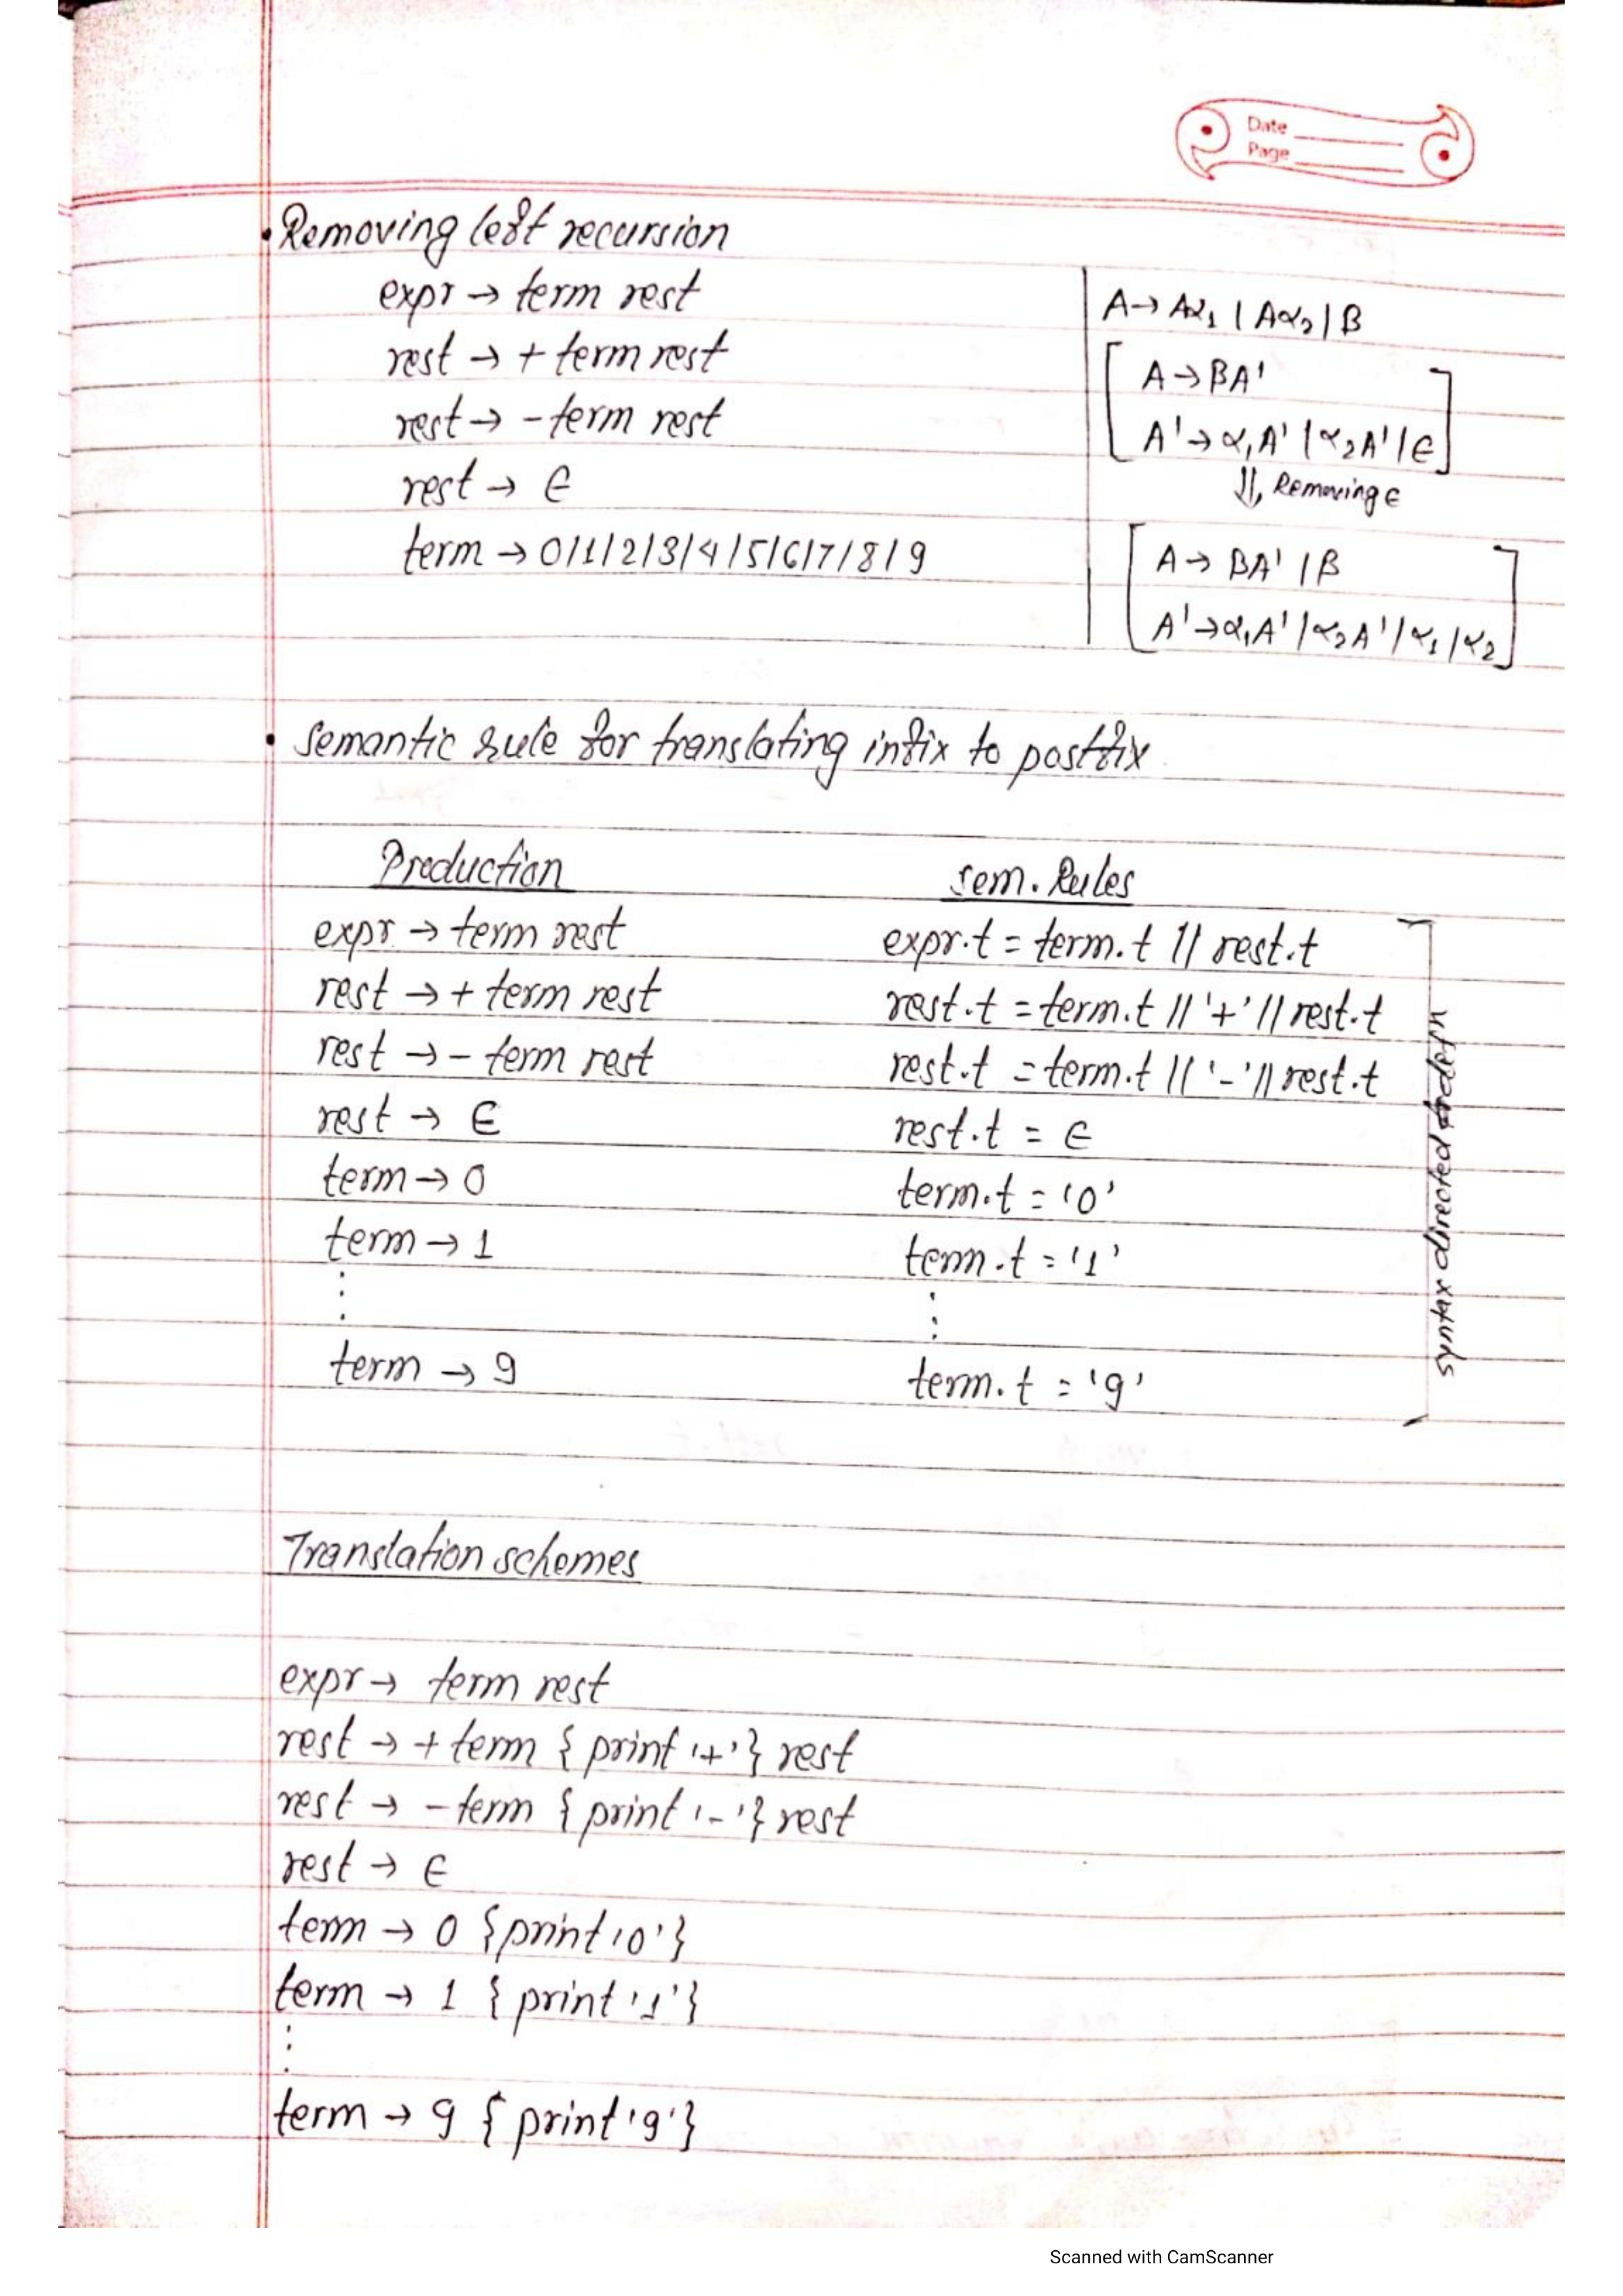 Date
Page
• Removing left recursion
expr → term rest
rest → + term rest
rest → - term rest
rest → ∈
term → 0/1/2/3/4/5/6/7/8/9
A → Aα₁ | Aα₂ | β
A → βA'
A' → α₁A' | α₂A' | ∈
⇓, Removing ∈
A → βA' | β
A' → α₁A' | α₂A' | α₁ | α₂
• Semantic rule for translating infix to postfix
Production sem. Rules
expr → term rest expr.t = term.t || rest.t
rest → + term rest rest.t = term.t || '+' || rest.t
rest → - term rest rest.t = term.t || '-' || rest.t
rest → ∈ rest.t = ∈
term → 0 term.t = '0'
term → 1 term.t = '1'
⋮ ⋮
term → 9 term.t = '9'
syntax directed defn
Translation schemes
expr → term rest
rest → + term { print '+' } rest
rest → - term { print '-' } rest
rest → ∈
term → 0 { print '0' }
term → 1 { print '1' }
⋮
term → 9 { print '9' }
Scanned with CamScanner